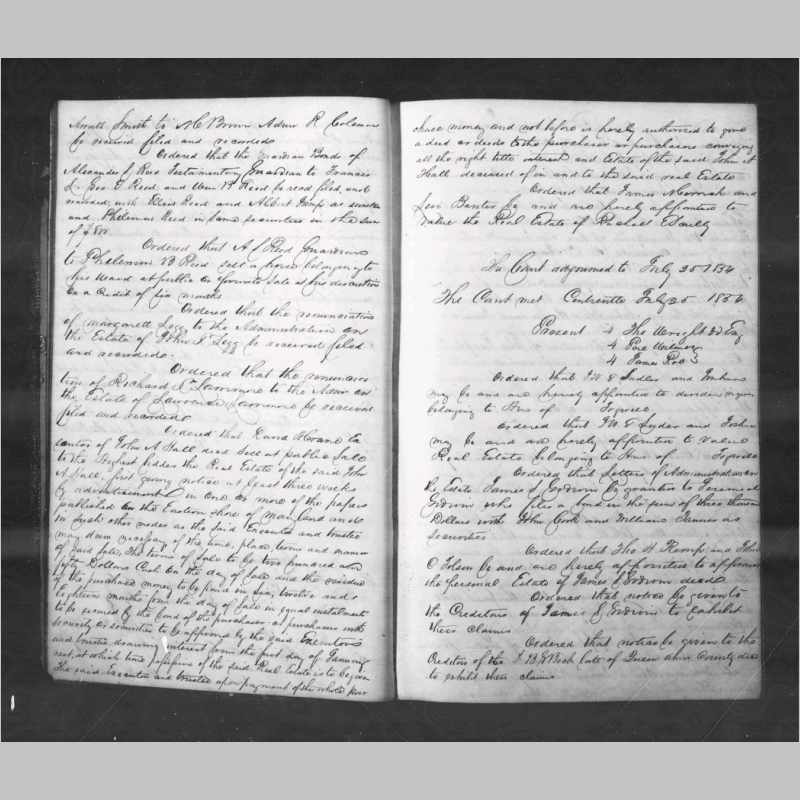 Smith to Mc Brown Admr R Coleman
be received filed and recorded
Ordered that the Guardian Bonds of
Alexander J Reed Testamentory Guardian to Francis
L. Geo. T Reed and Wm B Reed be recd filed and
recorded, with Reed and Albert as
and Philemon Reed in same securities in the sum
of $800
Ordered that A J Reed Guardian
to Philemon B Reed sell a horse belonging to
his Ward at public or private sale at his discretion
on a credit of six months
Ordered that the renunciation
of Margarett Legg to the Administration on
the Estate of John T. Legg be received filed
and recorded.
Ordered that the renuncia
tion of Richard Larrimore to the Admr on
the Estate of Larrimore be received
filed and recorded
Ordered that Ex
ecutor of John A Hall decd sell at public sale
to the highest bidder the Real Estate of the said John
A Hall, first giving notice at least three weeks
by advertisement in one or more of the papers
published on the Eastern Shore of Maryland and
in such other modes as the said Executor and trustee
may deem necessary of the time, place terms and manner
of said sale, The terms of sale to be two hundred and
fifty Dollars Cash on the day of sale and the residue
of the purchase money to be paid in six, twelve and
Eighteen months from the day of sale in equal instalments
to be secured by the bond of the purchaser or purchasers with
security or securities to be approved by the said Executor
and trustee drawing interest from the first day of January
next, at which time possession of the said Real Estate is to be given
The said Executor and trustee upon payment of the whole pur
chase money and not before is hereby authorized to give
a deed or deeds to the purchaser or purchasers conveying
all the right title interest and Estate of the said John A
Hall deceased of in and to the said real Estate
Ordered that James and
be and are hereby appointed to
value the Real Estate of Rachael E
The Court adjourned to July 25 1854
The Court met Centreville July 25 1854
Present 4 Tho Wright 3d Esq
4
4 James Roe
Ordered that and
may be and are hereby appointed to divide negroes
belonging to Hrs of
Ordered that and
may be and are hereby appointed to Value
Real Estate belonging to Hrs of
Ordered that Letters of Administration on
the Estate James S Godwin be granted to
Godwin who files a bond in the sum of three thousand
Dollars with John Cook and William as
securities
Ordered that Tho H Kemp and John
O be and are hereby appointed to appraise
the personal Estate of James S Godwin decd
Ordered that notice be given to
the Creditors of James S Godwin to Exhibit
their claims
Ordered that notice be given to the
Creditors of the late of Queen Anns County decd
to exhibit their claims